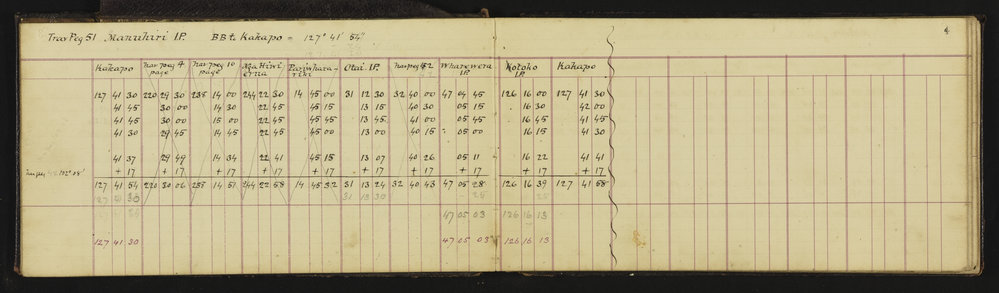 Trav Peg 51 Manuhiri IP. BB to Kakapo = 127° 41' 54"
4
Kakapo Trav peg 9 page Trav peg 10 page Otai IP. Trav peg 52 Wharewera IP. Kotoho IP. Kakapo
127 41 30 220 29 30 238 14 00 244 22 30 14 45 00 31 12 30 32 40 00 47 04 45 126 16 00 127 41 30
41 45 30 00 14 30 22 45 45 15 13 15 40 30 05 15 16 30 42 00
41 45 30 00 15 00 22 45 45 45 13 45 41 00 05 45 16 45 41 45
41 30 29 45 14 45 22 45 45 00 13 00 40 15 05 00 16 15 41 30
41 37 29 49 14 34 22 41 45 15 13 07 40 26 05 11 16 22 41 41
+ 17 + 17 + 17 + 17 + 17 + 17 + 17 + 17 + 17 + 17
127 41 54 220 30 06 238 14 51 244 22 58 14 45 32 31 13 24 32 40 43 47 05 28 126 16 39 127 41 58
127 41 30 31 13 30
47 05 03 126 16 13
127 41 30 47 05 03 126 16 13